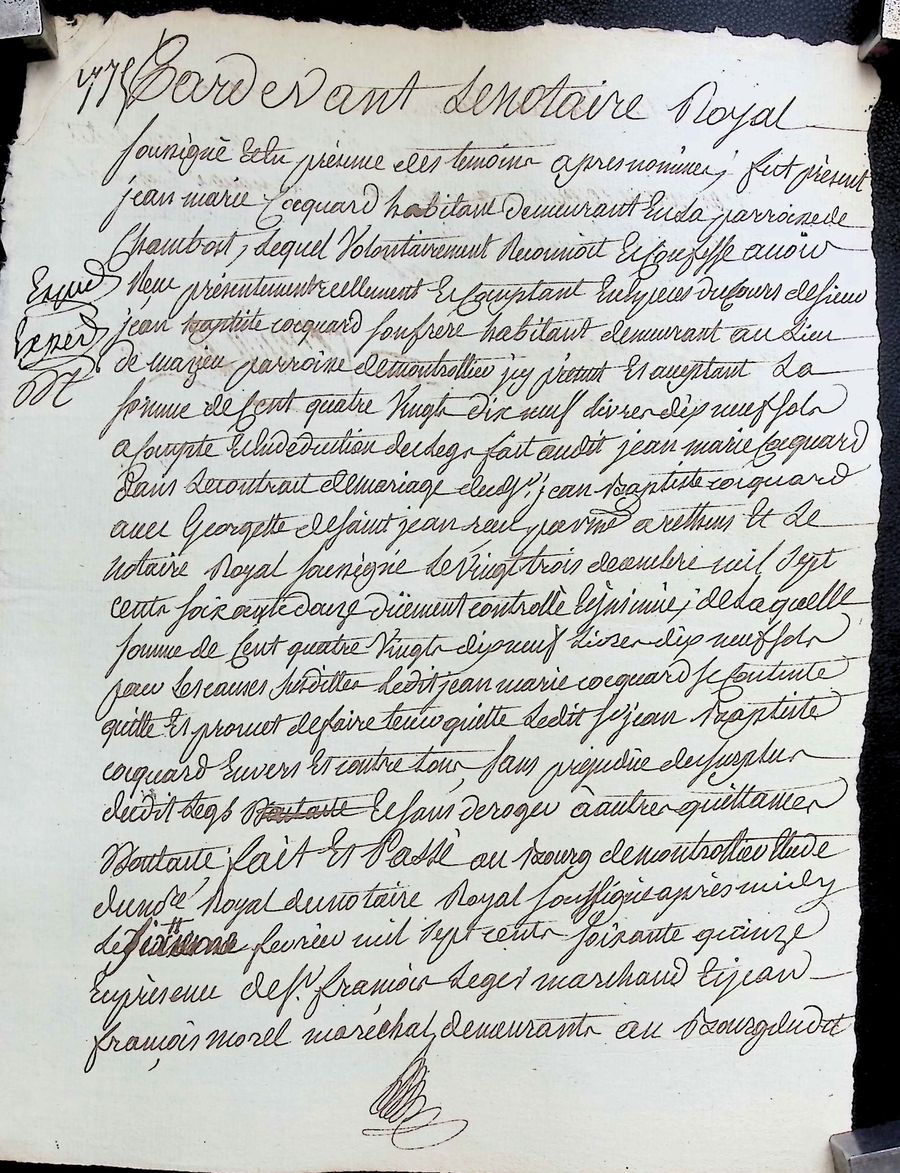 1775 Pardevant Le notaire Royal
soussigné Et En présence des temoins apres nommés, fut présent
jean marie Cocquard habitant demeurant En La parroisse de
Chambost, Lequel Volontairement Reconnoit Et Confesse avoir
Expéd
Reçu présentement reellement Et Comptant En Espéces du Cours de sieur
Expéd
jean Baptiste cocquard son frere habitant demeurant au Lieu
de mazieu parroisse de montrottier jcy présent Et aceptant La
somme de Cent quatre Vingt dix neuf Livres dix neuf sols
a Compte Et En deduction du Legs fait audit jean marie Cocquard
dans Le contrait de mariage dudt Sr jean Baptiste cocquard
avec Georgette de saint jean reçu par me arethuis Et Le
notaire Royal soussigné Le Vingt trois decembre mil sept
cents soixante douze düement controllé Et jnsinué, de Laquelle
somme de Cent quatre Vingt dix neuf Livres dix neuf sols
pour Les causes susdittes Ledit jean marie cocquard se Contente
quitte Et promet de faire tenir quitte Ledit sr jean Baptiste
cocquard Envers Et contre tous, sans préjudice du surplus
dudit Legs Et sans deroger à autres quittances
fait Et Passé au Bourg de montrottier Etude
du notaire Royal soussigné après midy
Le fevrier mil sept cents soixante quinze
En présence de sr françois Leger marchand Et jean
françois morel maréchal, demeurants au Bourg dudit